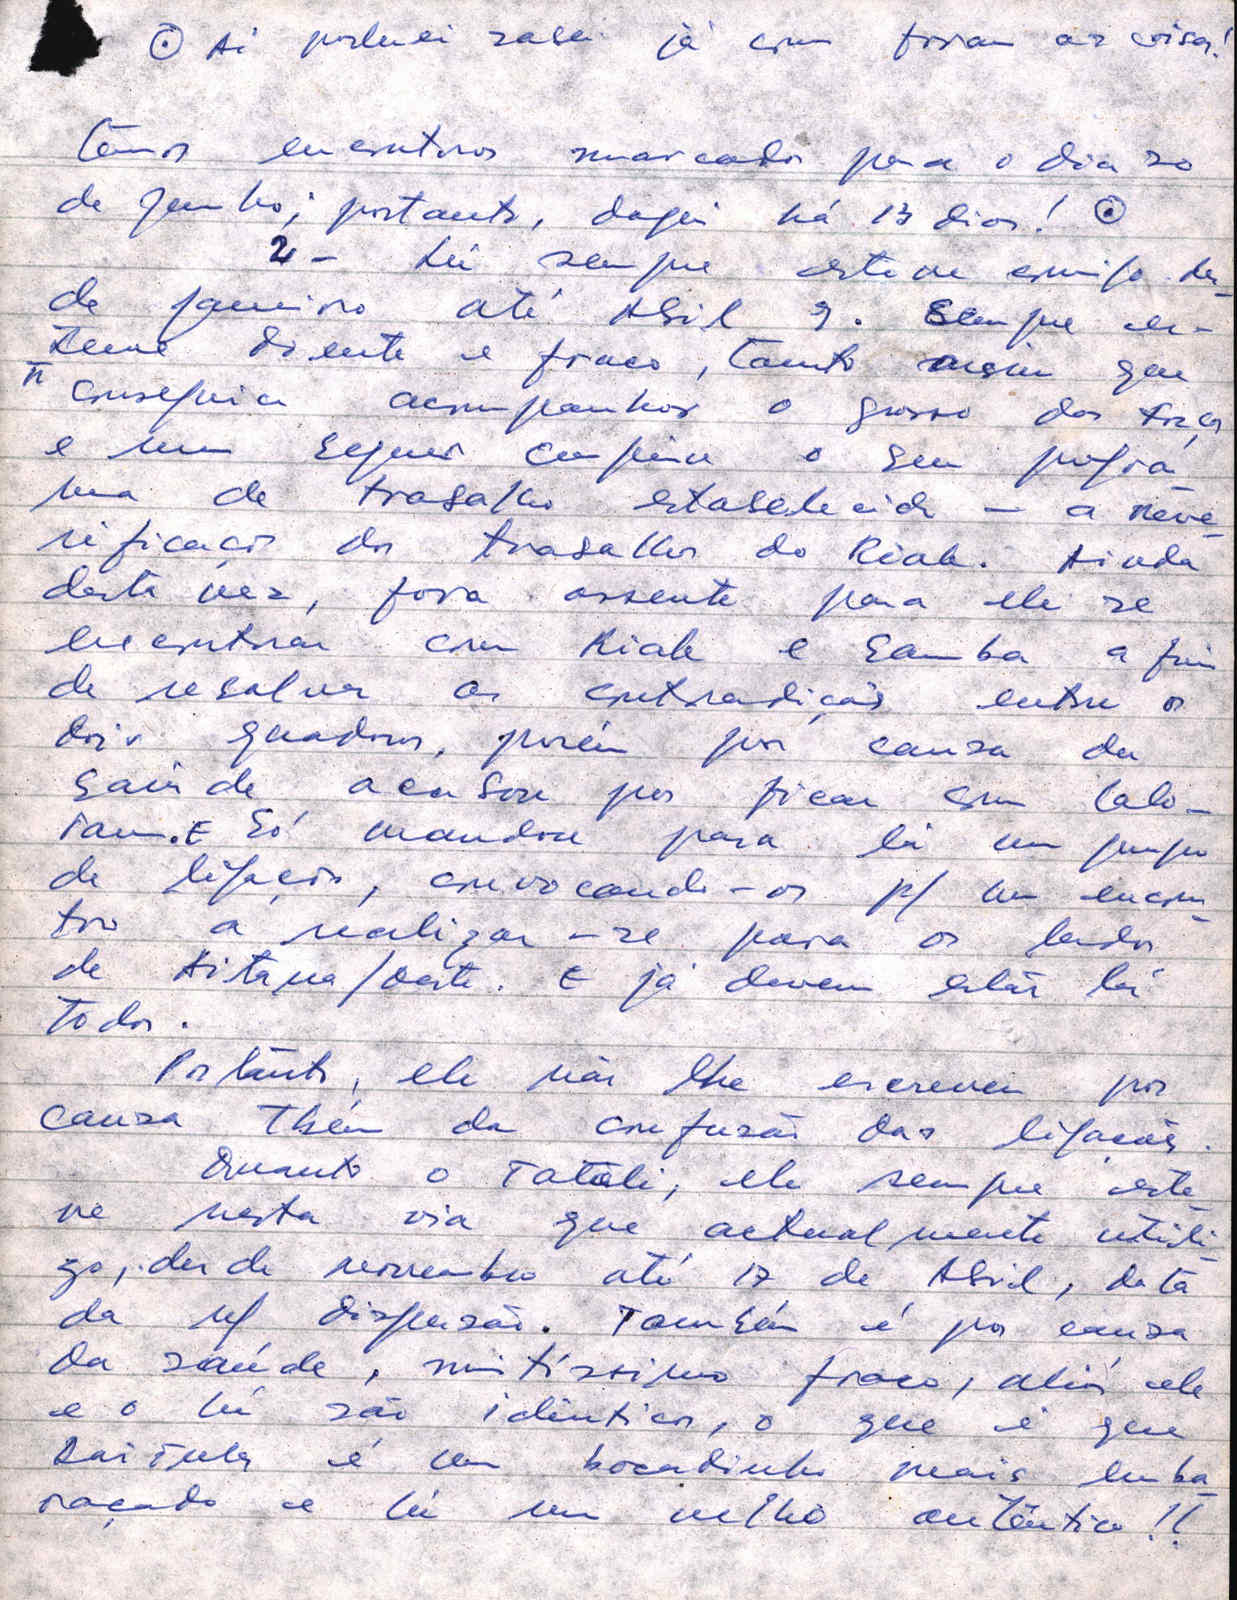 ⊙ Aí poderei saber já com foram as coisas!
Temos encontros marcados para o dia 20
de Junho; portanto, daqui há 13 dias! ⊙
2 - Lú sempre esteve comigo des-
de janeiro até Abril 9. Sempre es-
teve doente e fraco, tanto assim que
ñ conseguia acompanhar o grosso das forças
e nem sequer cumprira o seu progra-
ma de trabalho estabelecido - a neve-
rificação dos trabalhos do Kiak. Ainda
desta vez, fora assente para ele se
encontrar com Kiak e Samba a fim
de resolver as contradições entre os
dois quadros, porém por causa da
saúde acabou por ficar com Calo-
. E Só mandou para lá um grupo
de ligação, convocando-os p/ um encon-
tro a realizar-se para os lados
de /Oeste. E já devem estar lá
todos.
Portanto, ele não lhe escreveu por
causa tbém da confusão das ligações.
Quanto o Tatali, ele sempre este-
ve nesta via que actualmente utili-
zo, desde novembro até 17 de Abril, data
da n/ dispersão. Também é por causa
da saúde, muitíssimo fraco, aliás ele
e o Lú são idênticos, o que é que
é um bocadinho mais emba-
raçado e Lú um velho autêntico!!